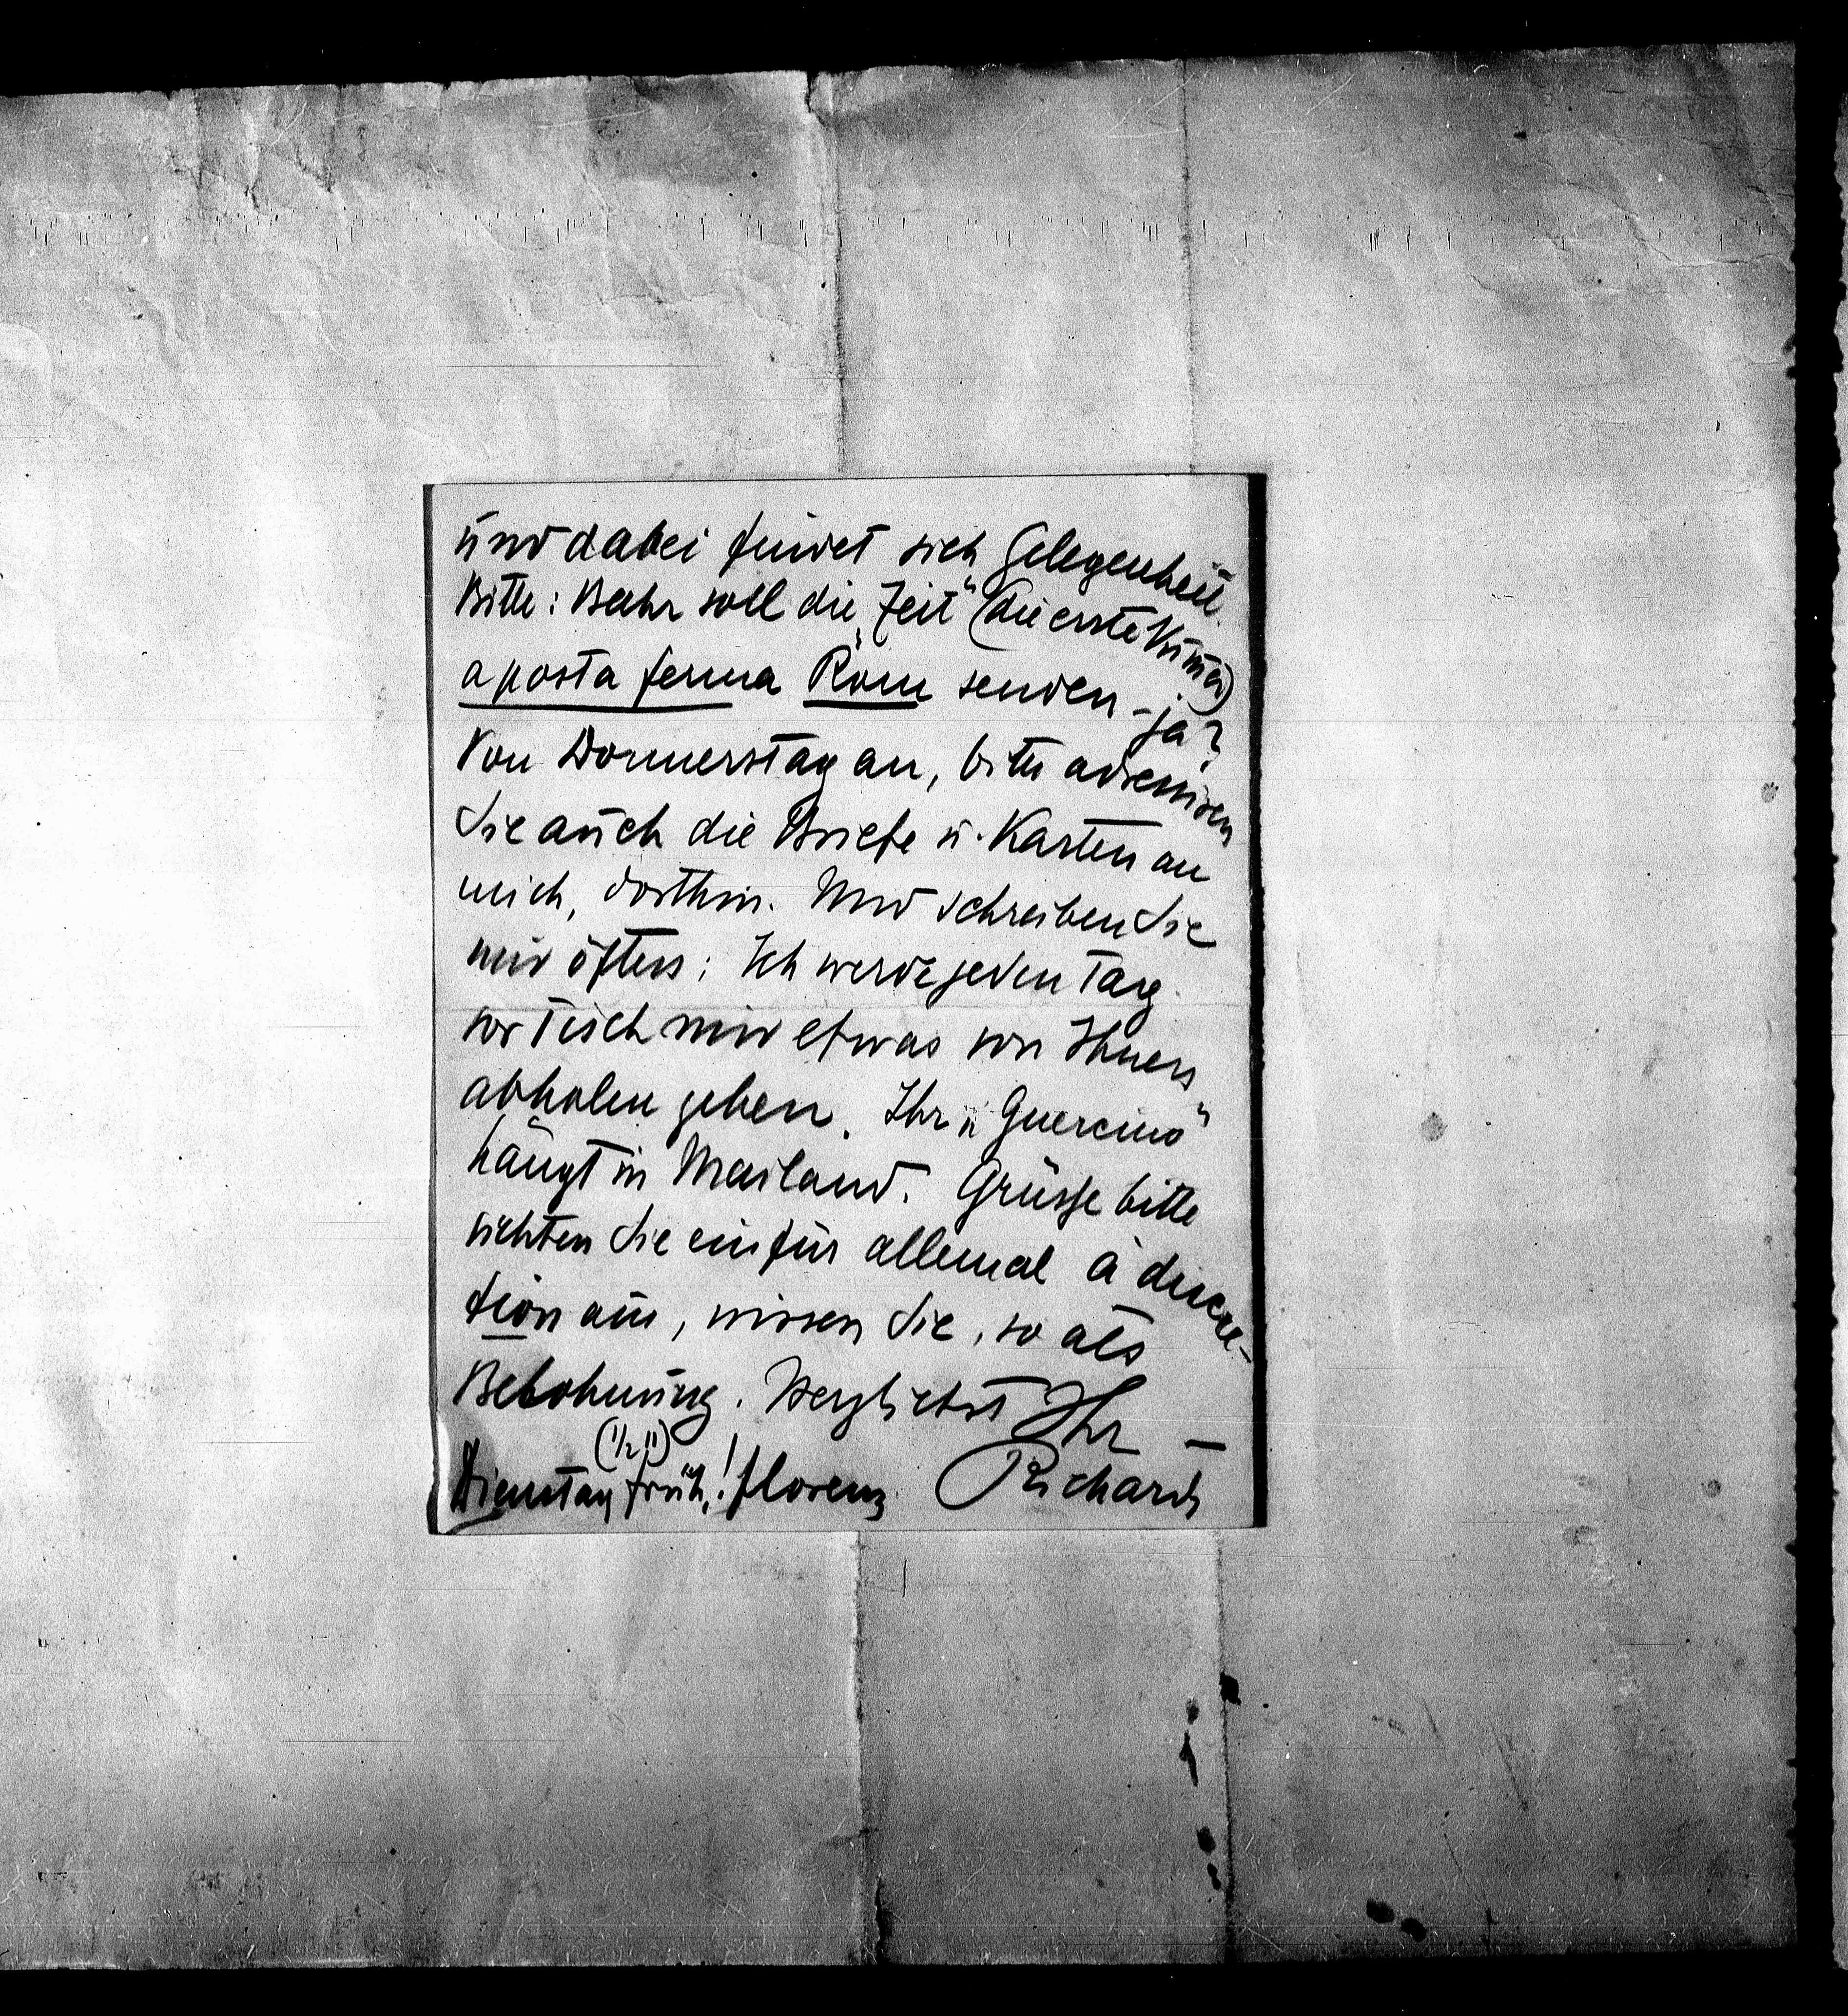 und dabei findet sich Gelegenheit.
Bitte: Bahr soll die „Zeit“ (die erste Numer)
a posta ferma Rom senden – ja?
Von Donnerstag an, bitte adressiren
Sie auch die Briefe u. Karten an
mich, dorthin. Und schreiben Sie
mir öfters; Ich werde jeden Tag
vor Tisch mir etwas von Ihnen
abholen gehen. Ihr „Guercino“
hängt in Mailand. Grüsse bitte
richten Sie ein für allemal à discre-
tion aus, wissen Sie, so als
Belohnung. Herzlichst Ihr –
(1/2 11)
Dienstag früh! Florenz Richard